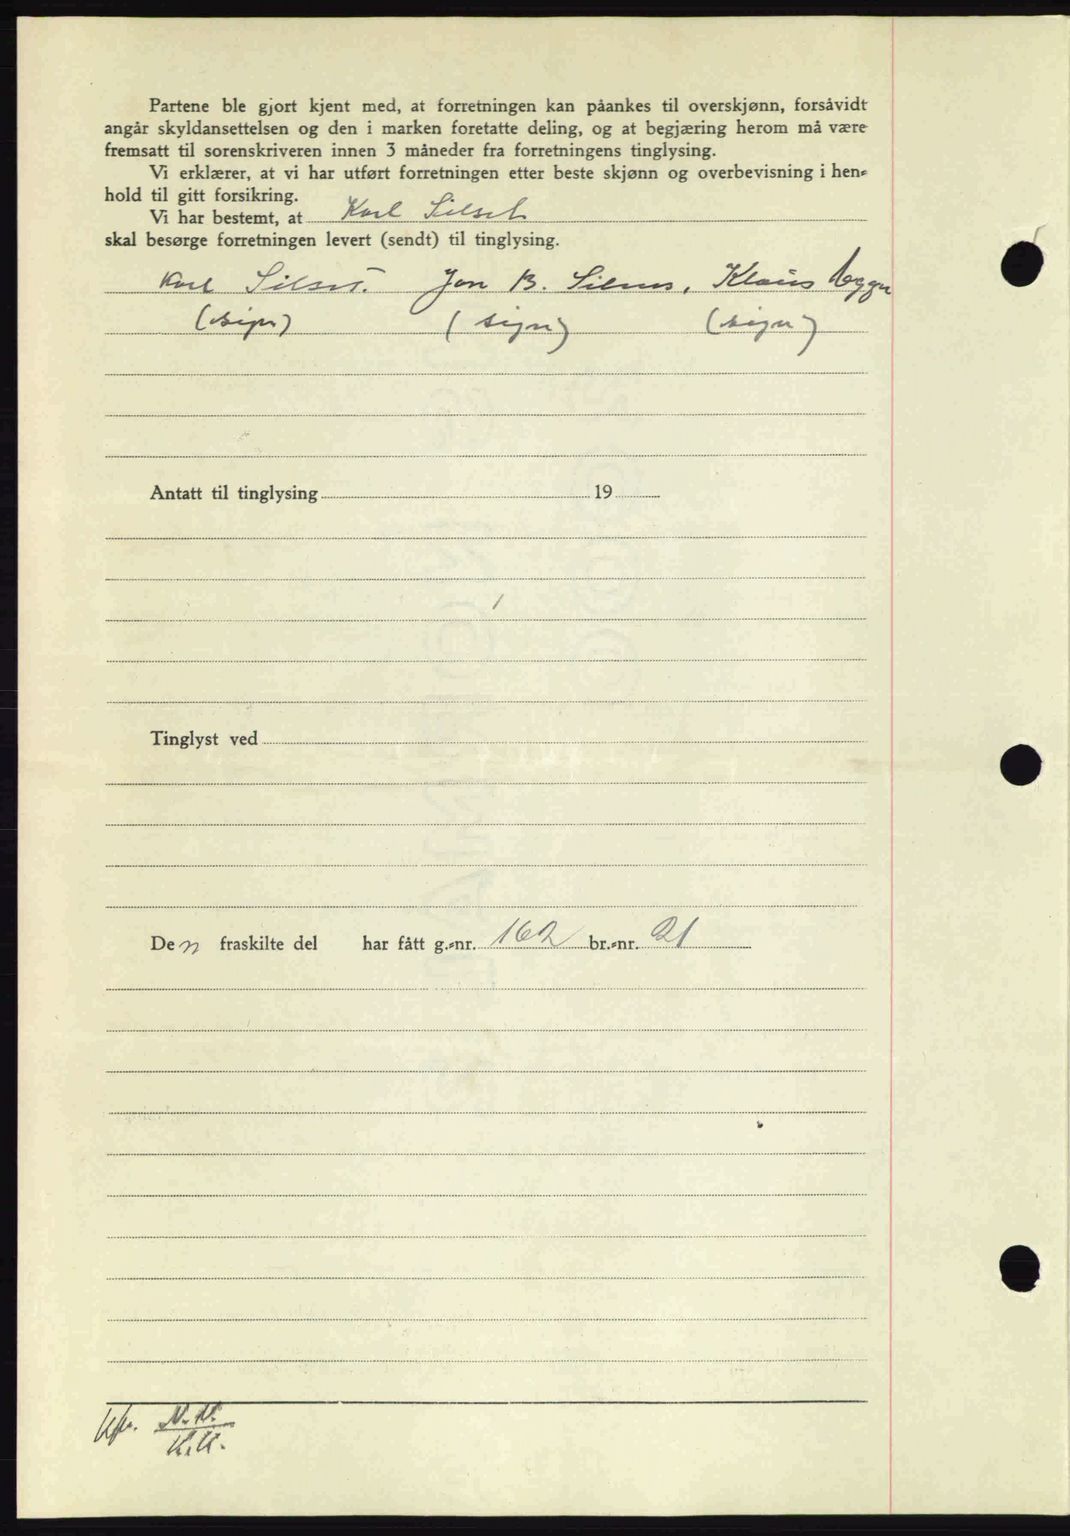 Partene ble gjort kjent med, at forretningen kan påankes til overskjønn, forsåvidt
angår skyldansettelsen og den i marken foretatte deling, og at begjæring herom må være
fremsatt til sorenskriveren innen 3 måneder fra forretningens tinglysing.
Vi erklærer, at vi har utført forretningen etter beste skjønn og overbevisning i hen-
hold til gitt forsikring.
Vi har bestemt, at Karl Silset
skal besørge forretningen levert (sendt) til tinglysing.
Karl Silset. Jon B. Silnes, Klaus
(sign) (sign) (sign)
Antatt til tinglysing 19
Tinglyst ved
Den fraskilte del har fått g.-nr. 162 br.-nr. 21